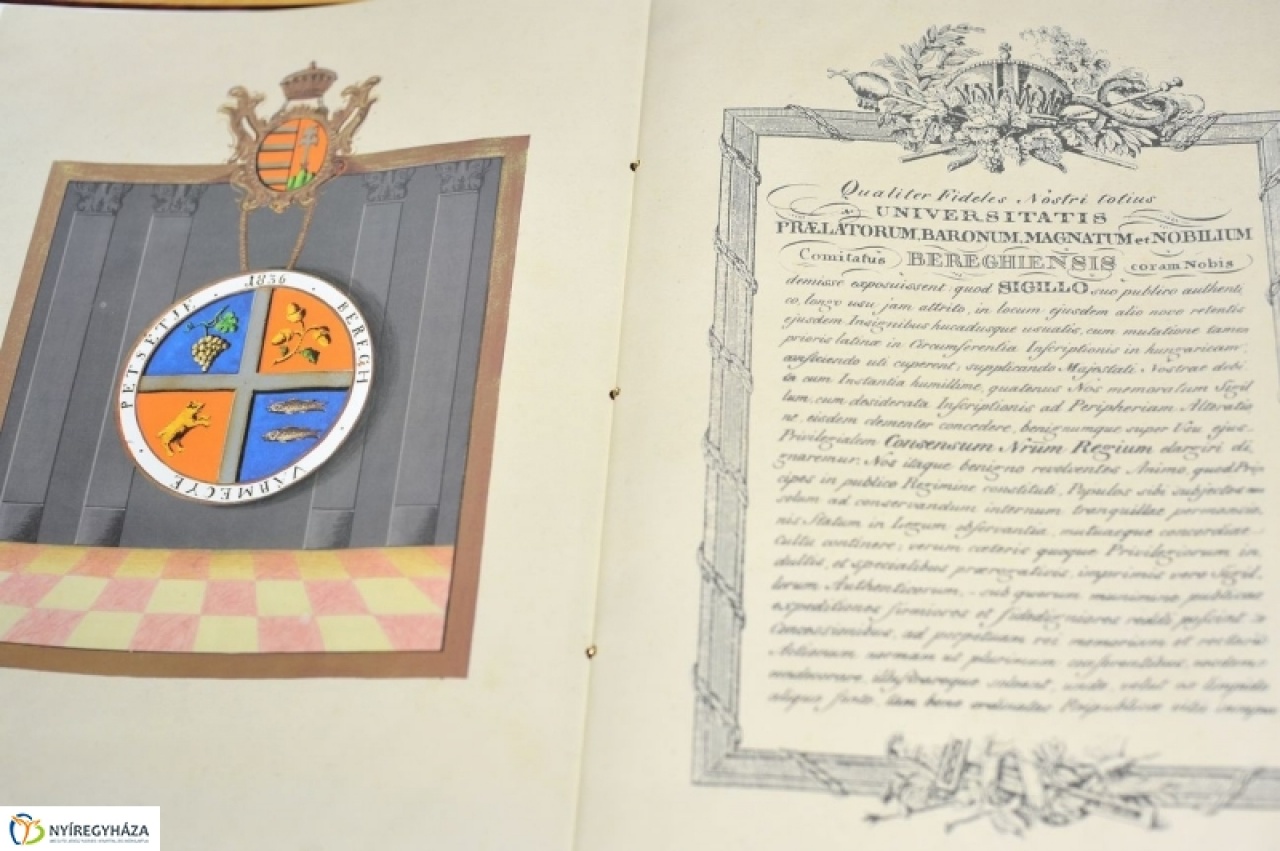 · 1836 · BEREGH · VÁRMEGYE · PETSÉTJE
Qualiter Fideles Nostri totius
UNIVERSITATIS
PRÆLATORUM, BARONUM, MAGNATUM et NOBILIUM
Comitatus BEREGHIENSIS coram Nobis
demisse exposuissent: quod SIGILLO suo publico authenti
co, longo usu jam attrito, in locum ejusdem alio novo retentis
ejusdem Insignibus hucadusque usualis, cum mutatione tamen
prioris latinæ in Circumferentia Inscriptionis in hungaricam
conficiendo uti cuperent; supplicando Majestati Nostræ debi
ta cum Instantia humillime, quatenus Nos memoratum Sigil
lum, cum desiderata Inscriptionis ad Peripheriam Alteratio
ne, eisdem clementer concedere, benignumque super Usu ejus
Privilegialem Consensum Nrum Regium dargiri di
gnaremur: Nos itaque benigno revolventes Animo, quod Prin
cipes in publico Regimine constituti, Populos sibi subjectos non
solum ad conservandum internum tranquillæ permansio
nis Statum in Legum observantia, mutuaeque concordiae
Cultu continere; verum cæteris quoque Privilegiorum in
dultis, et specialibus prærogativis, imprimis vero Sigil
lorum Authenticorum, sub quorum munimine publicae
expeditiones firmiores et fidedigniores reddi possint
Concessionibus, ad perpetuam rei memoriam et rectarum
Actionum normam ut plurimum conferentibus,
condecorare, illustrareque soleant, unde, velut
aliquo fonte, tam bene ordinatae Reipublicæ
NYÍREGYHÁZA